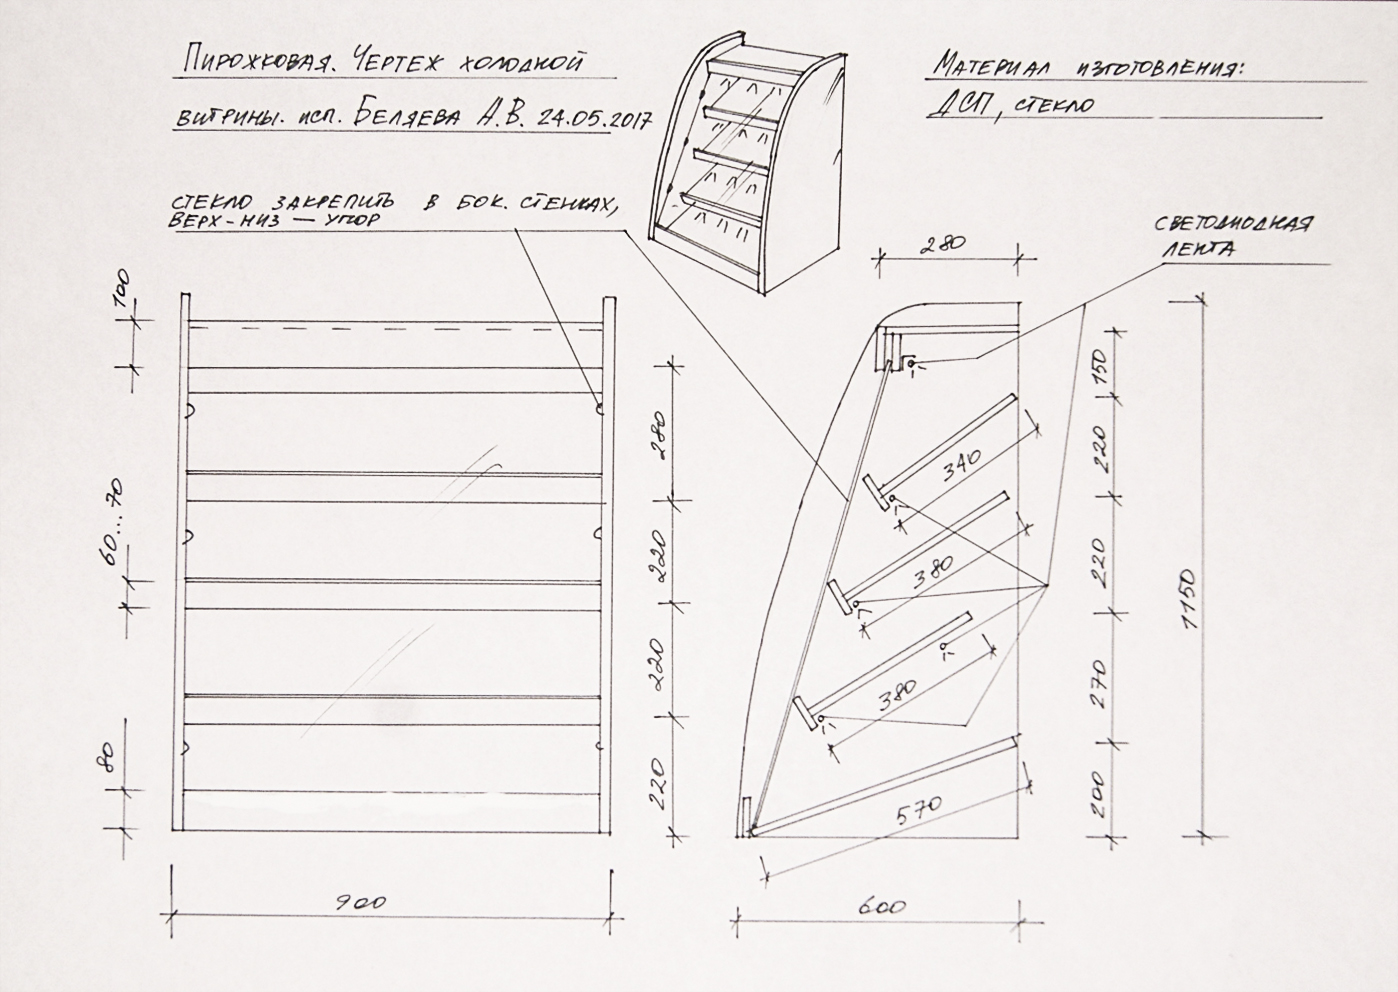 Пирожковая. Чертеж холодной
витрины. исп. Беляева А.В. 24.05.2017
Материал изготовления:
ДСП, стекло
стекло закрепить в бок. стенках,
верх-низ — упор
светодиодная
лента
280
100
150
280
220
340
60...70
220
220
380
1150
220
270
380
80
220
200
570
900
600